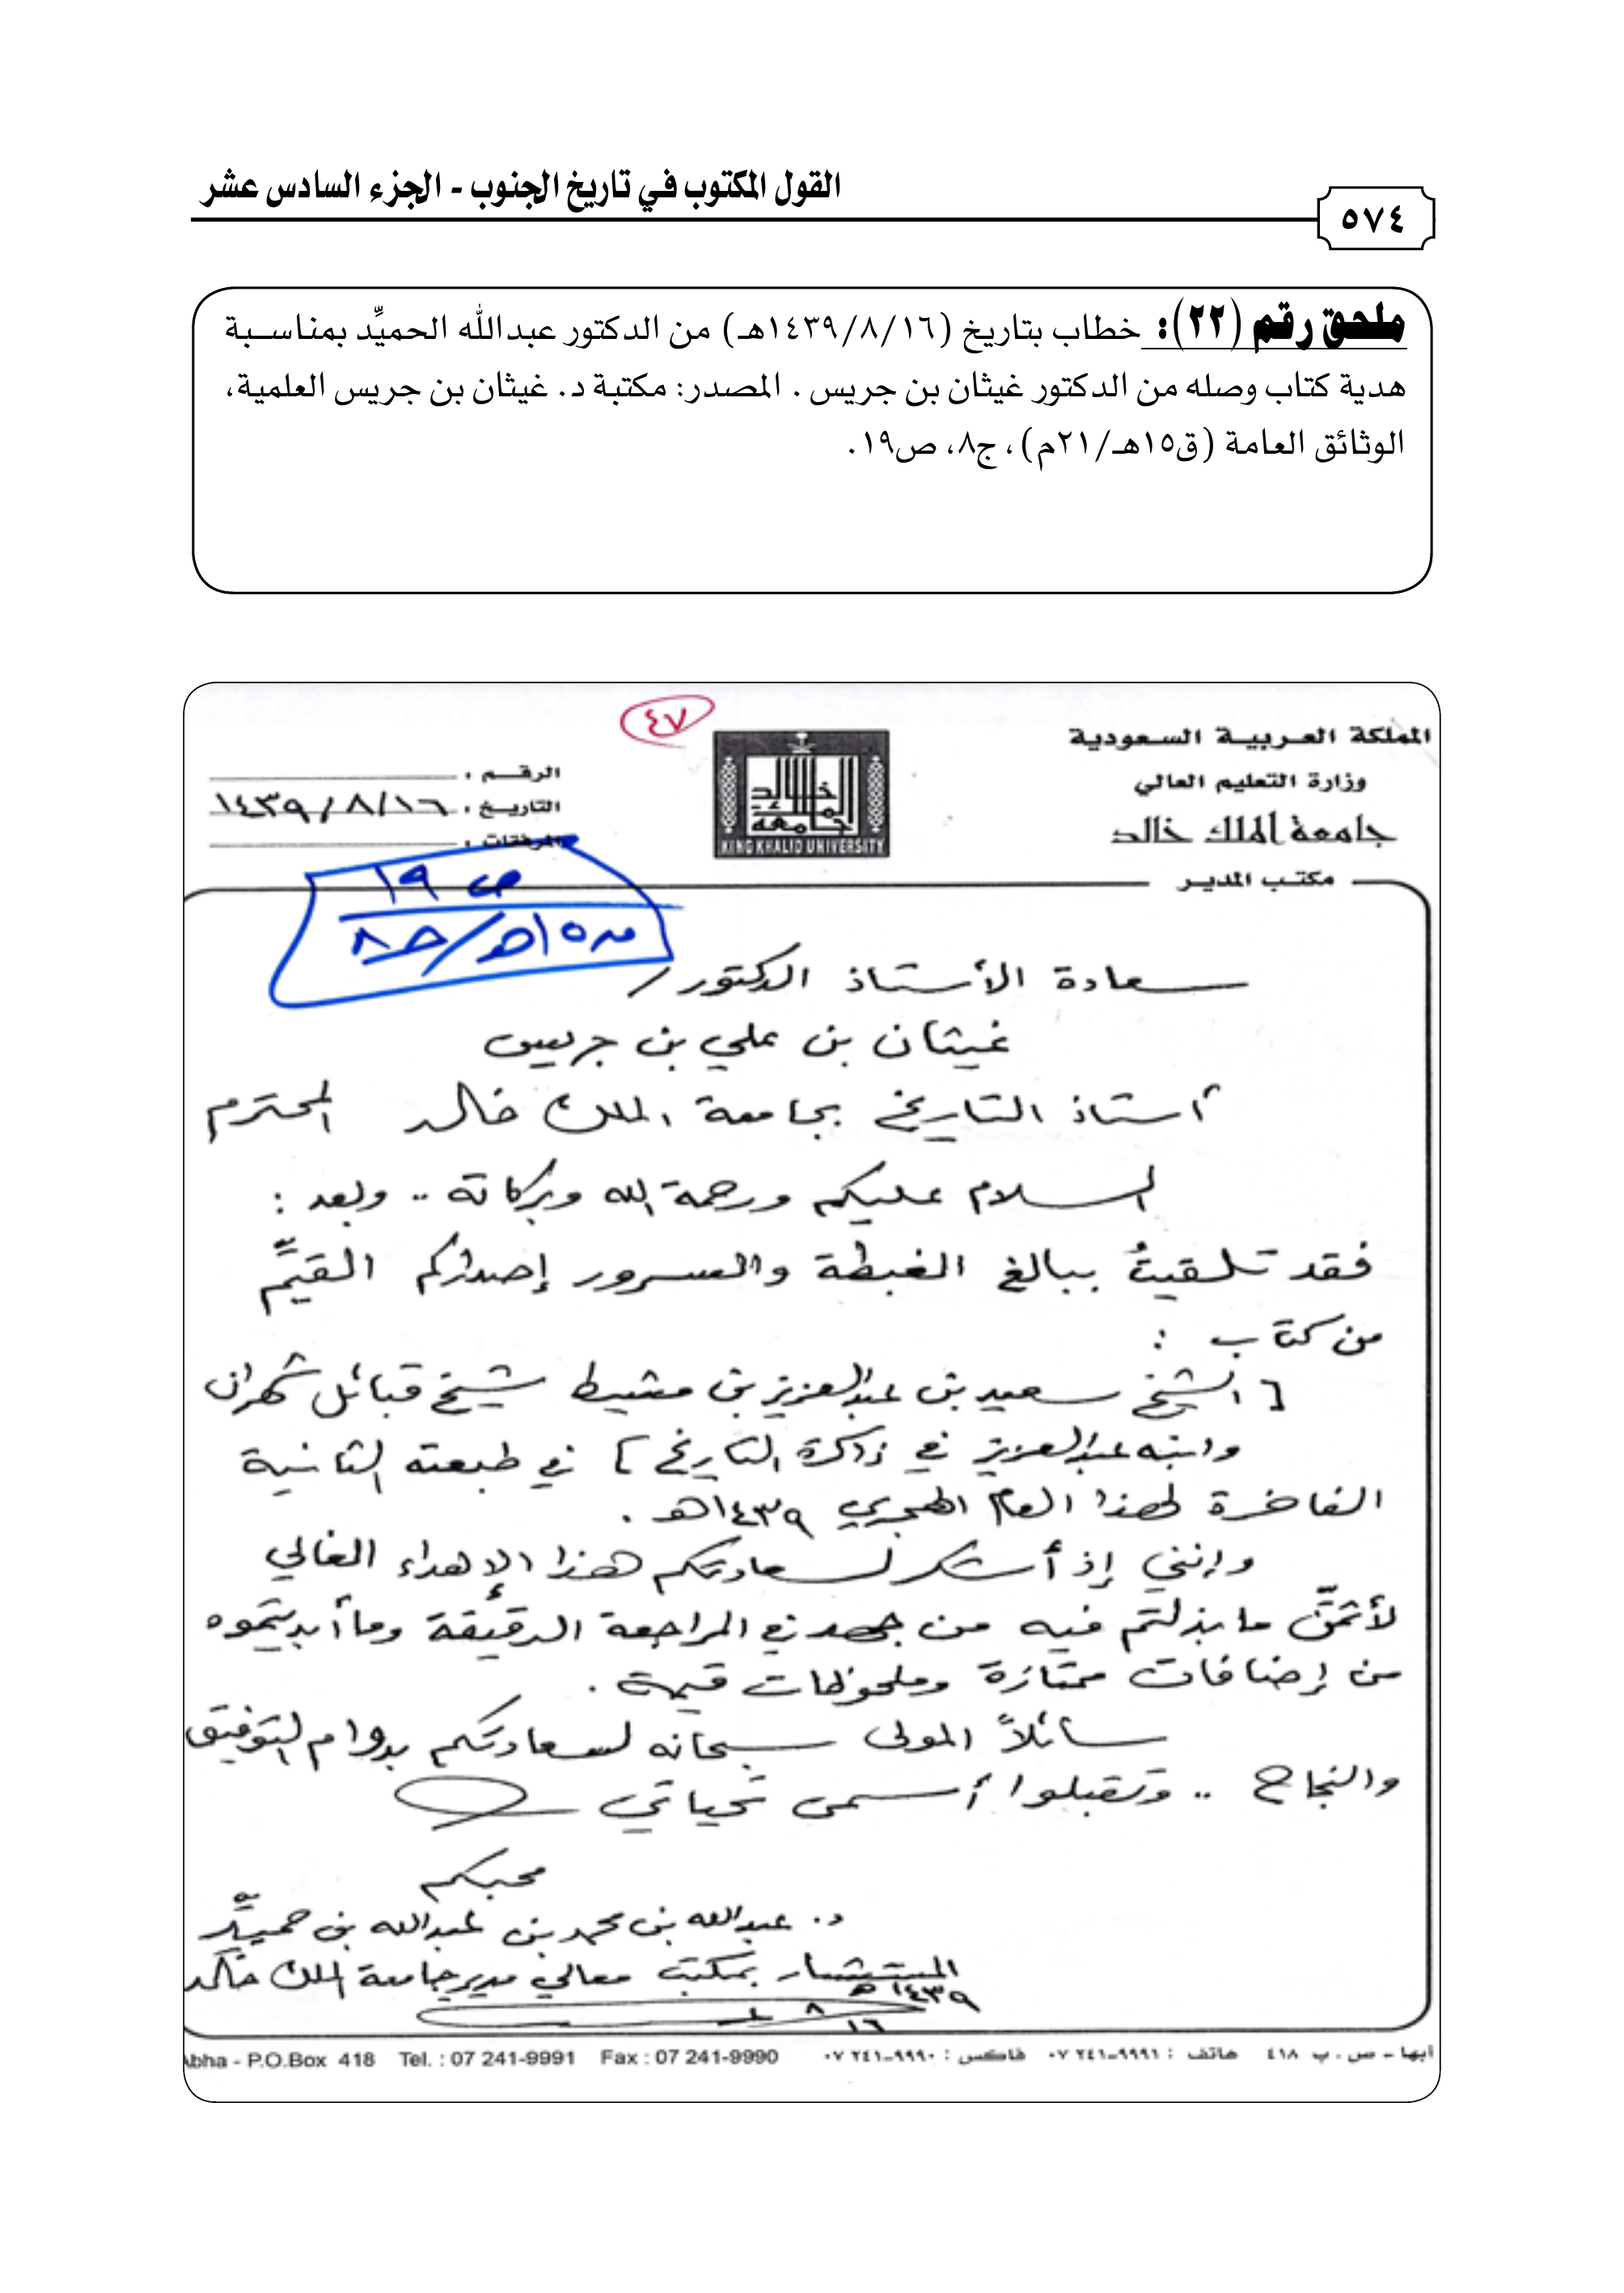 القول المكتوب في تاريخ الجنوب - الجزء السادس عشر
٥٧٤
ملحق رقم (٢٢): خطاب بتاريخ (١٤٣٩/٨/١٦هـ) من الدكتور عبدالله الحميِّد بمناسبة
هدية كتاب وصله من الدكتور غيثان بن جريس . المصدر: مكتبة د. غيثان بن جريس العلمية،
الوثائق العامة (ق١٥هـ/٢١م)، ج٨، ص١٩.
٤٧
المملكة العربية السعودية
وزارة التعليم العالي
جامعة الملك خالد
مكتب المدير
جامعة الملك خالد
KING KHALID UNIVERSITY
الرقم :
التاريخ : ١٤٣٩/٨/١٦
المرفقات :
ص ١٩
ق١٥هـ/ج٨
سعادة الأستاذ الدكتور /
غيثان بن علي بن جريس
أستاذ التاريخ بجامعة الملك خالد المحترم
السلام عليكم ورحمة الله وبركاته .. وبعد :
فقد تلقيتُ ببالغ الغبطة والسرور إصداركم القيِّم
من كتاب :
[ الشيخ سعيد بن عبدالعزيز بن مشيط شيخ قبائل شهران
وابنه عبدالعزيز في ذاكرة التاريخ ] في طبعته الثانية
الفاخرة لهذا العام الهجري ١٤٣٩هـ .
وإنني إذ أشكر لسعادتكم هذا الإهداء الغالي
لأثمّن ما بذلتم فيه من جهد في المراجعة الدقيقة وما أبديتموه
من إضافات ممتازة وملحوظات قيمة .
سائلاً المولى سبحانه لسعادتكم بدوام التوفيق
والنجاح .. وتقبلوا أسمى تحياتي
محبكم
د. عبدالله بن محمد بن عبدالله بن حميِّد
المستشار بمكتب معالي مدير جامعة الملك خالد
١٤٣٩هـ
٨
١٦
أبها - ص . ب ٤١٨ هاتف : ٩٩٩١-٢٤١ ٠٧ فاكس : ٩٩٩٠-٢٤١ ٠٧
Abha - P.O.Box 418 Tel. : 07 241-9991 Fax : 07 241-9990